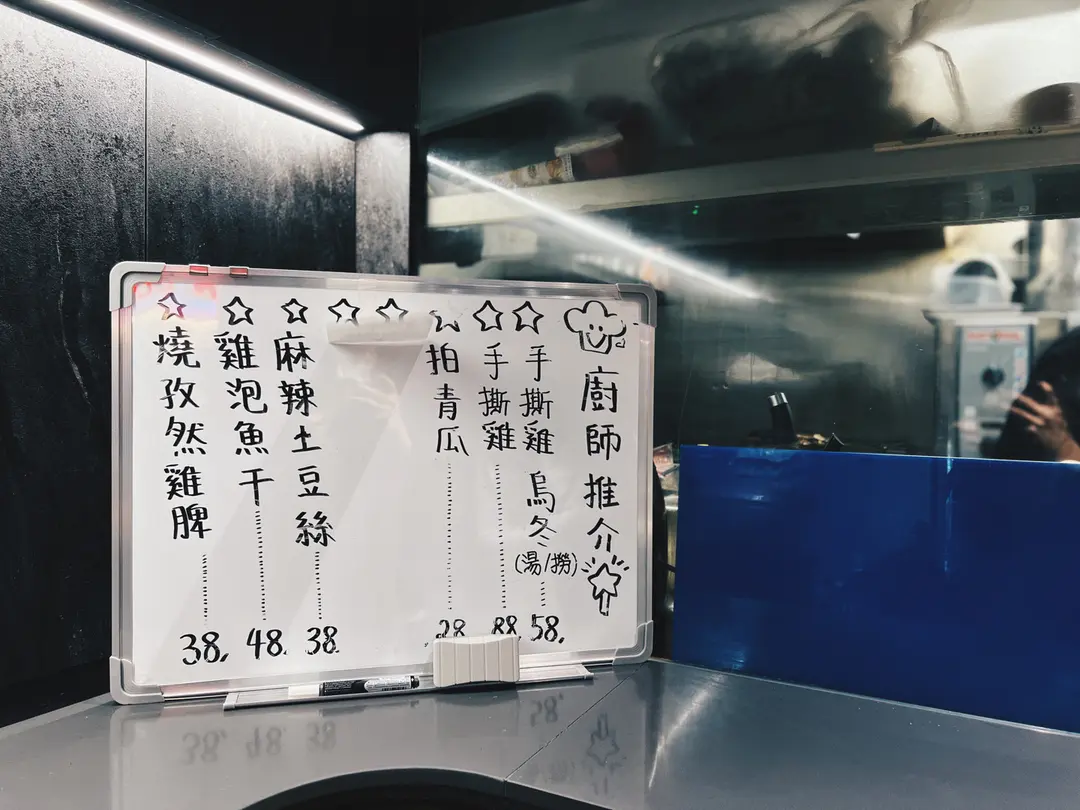 廚師推介
手撕雞烏冬(湯/撈) 58.
手撕雞 88
拍青瓜 28
麻辣土豆絲 38.
雞泡魚干 48.
燒孜然雞脾 38.